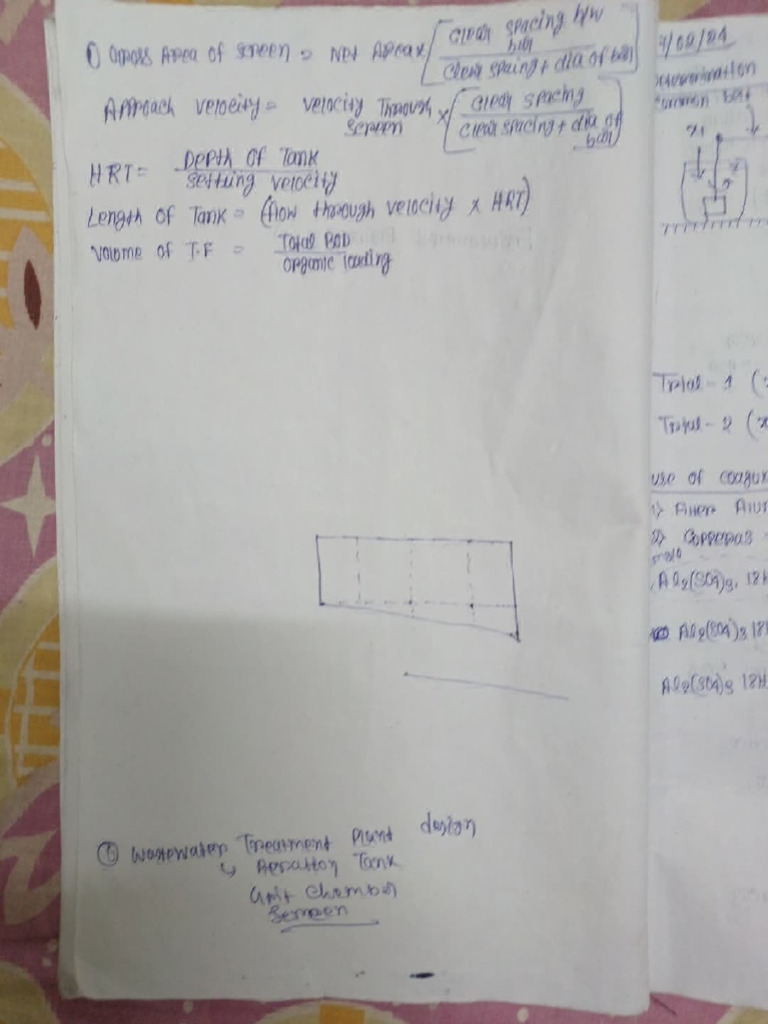 ① Gross Area of screen = Net Area x [ clear spacing b/w bar / clear spacing + dia of bar ]
Approach velocity = velocity Through screen x [ clear spacing / clear spacing + dia of bar ]
HRT = Depth of Tank / settling velocity
Length of Tank = (flow through velocity x HRT)
Volume of T.F = Total BOD / organic loading
⑥ Wastewater Treatment Plant design
↳ Aeration Tank
Grit Chamber
Screen
/02/24
common
x1
Trial - 1 (
Trial - 2 (
use of
1) Filter
2) Copperas
Al2(SO4)3. 18H
Al2(SO4)3 18
Al2(SO4)3 18H